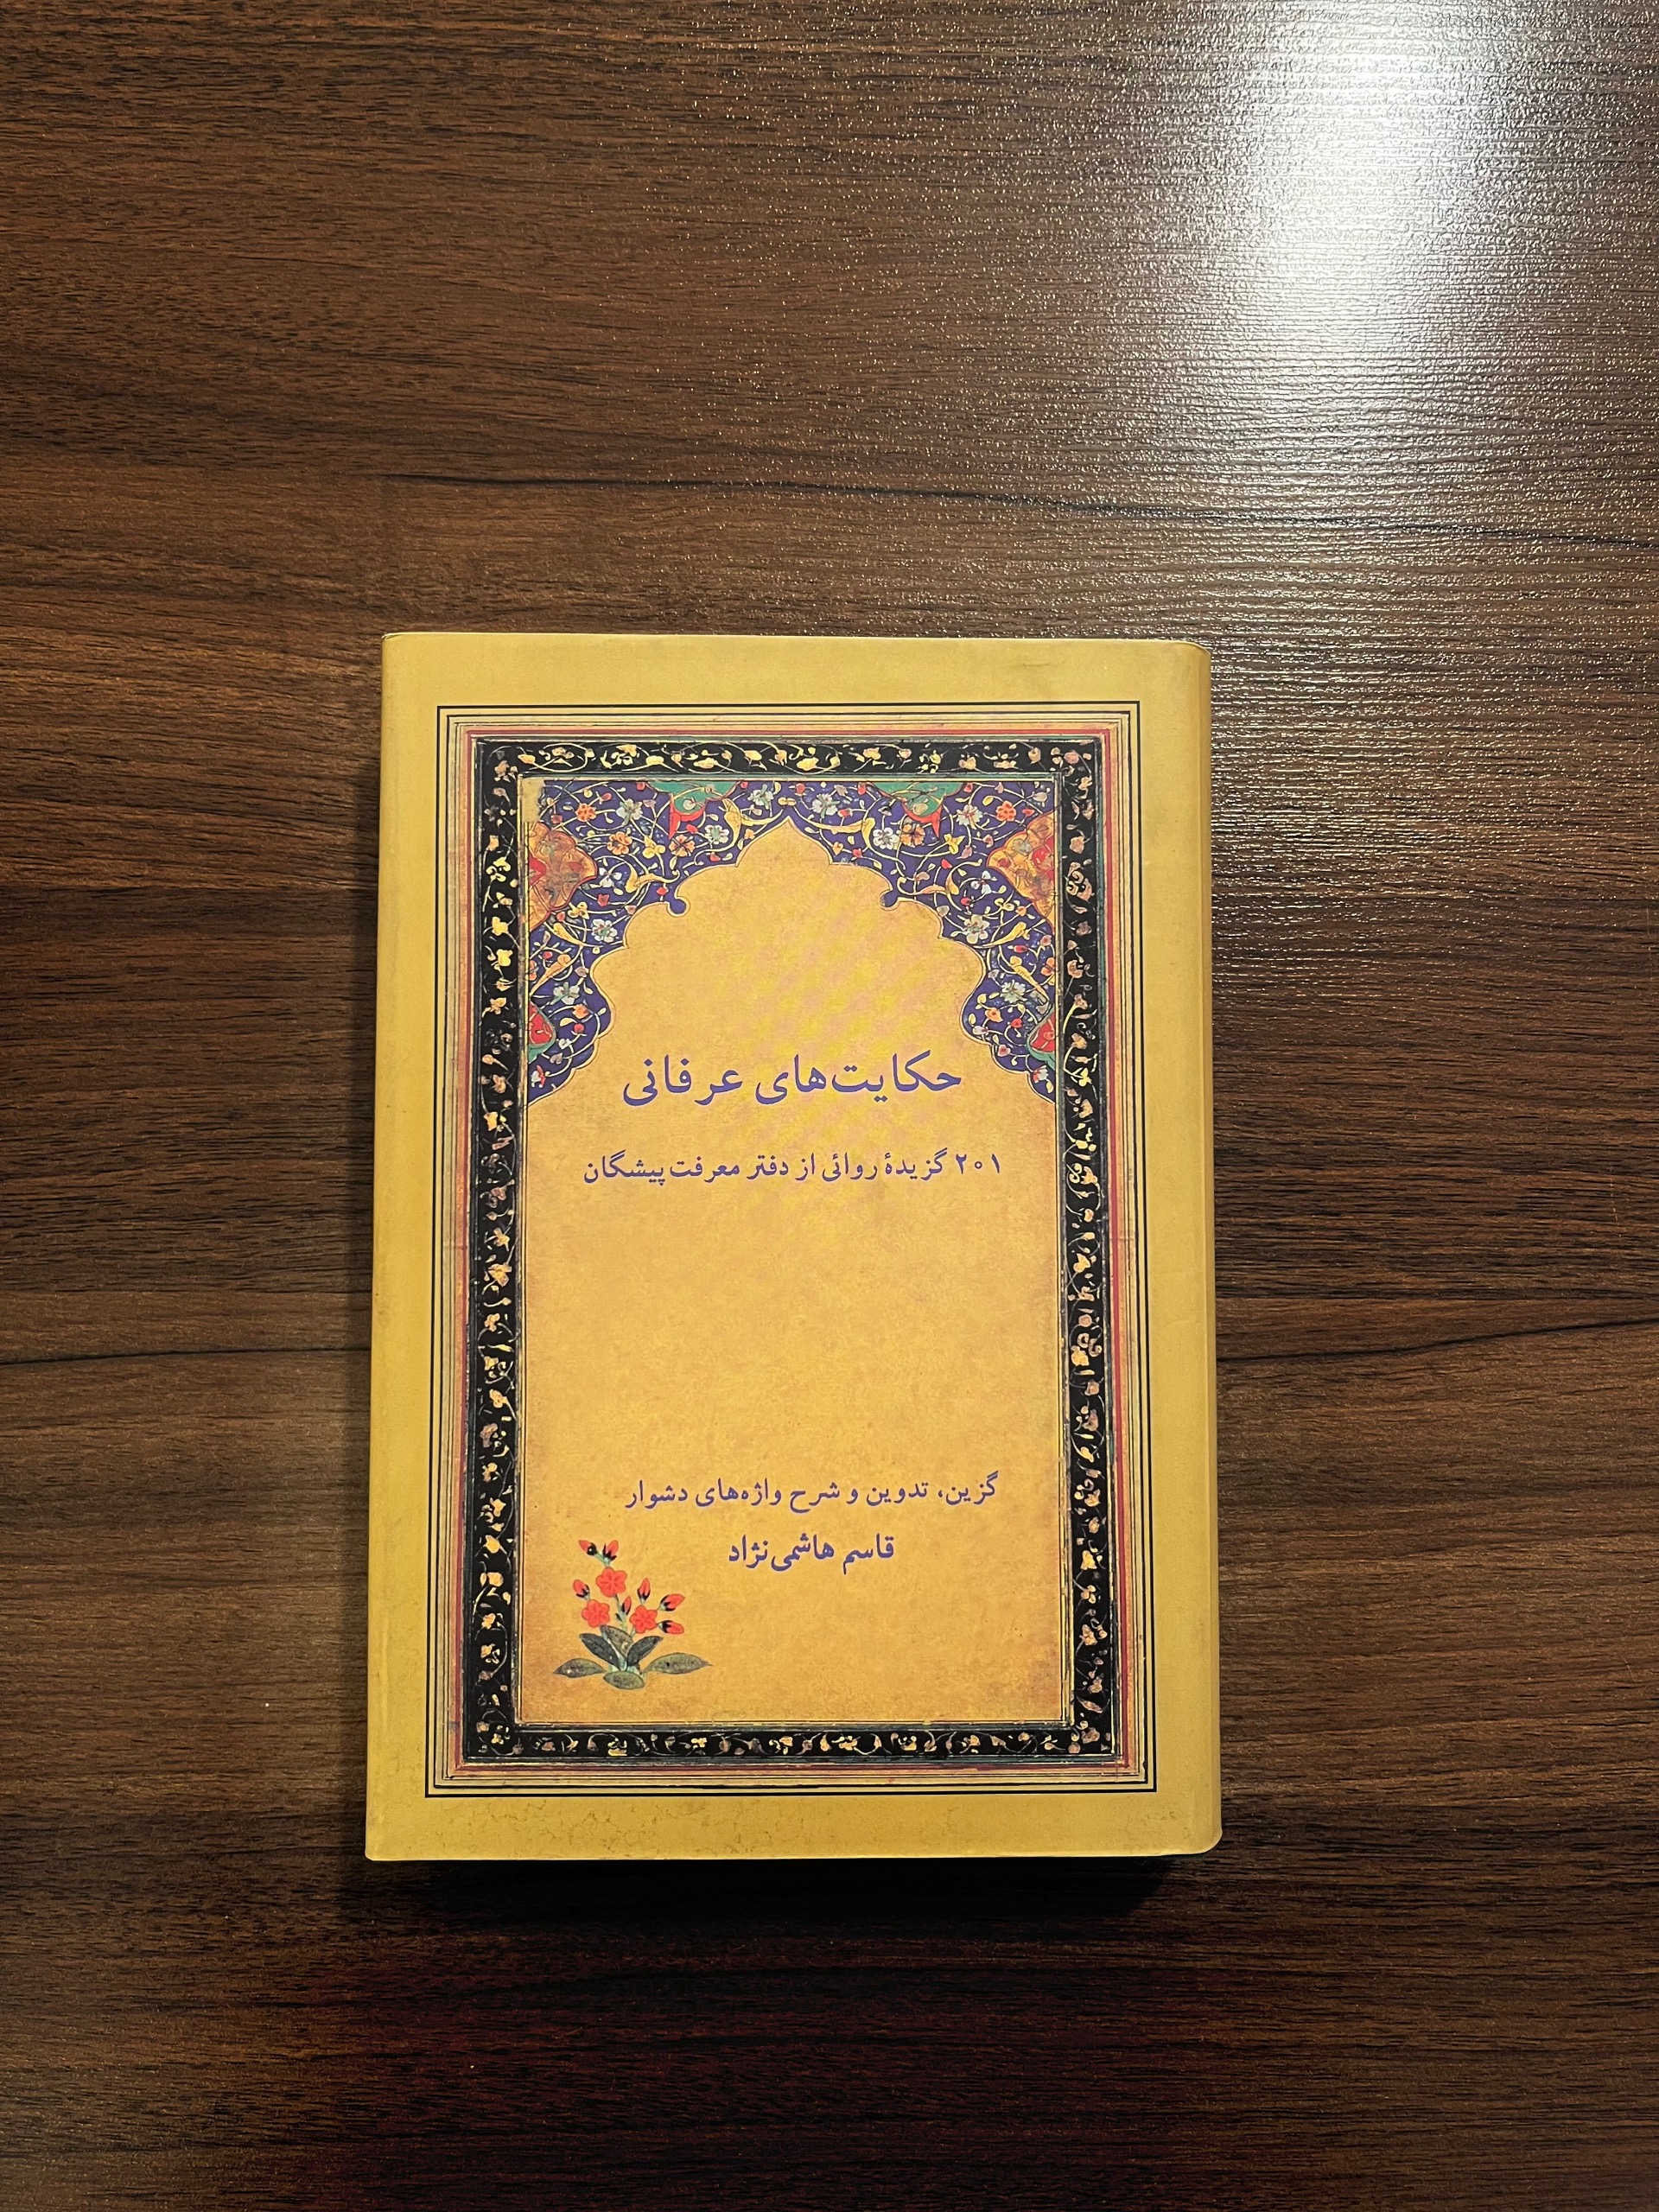 حکایت‌های عرفانی
۲۰۱ گزیدهٔ روائی از دفتر معرفت‌پیشگان
گزین، تدوین و شرح واژه‌های دشوار
قاسم هاشمی‌نژاد